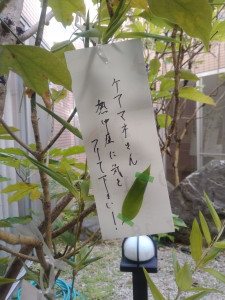 ケアマネさん
熱中症に気を
つけて下さい!!